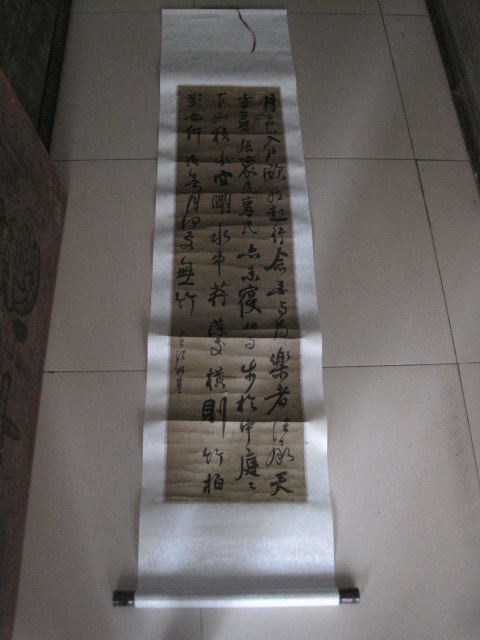 月色入户欣然起行念無与為樂者承天
寺尋張懷民懷民亦未寢相与步於中庭〻
下如積水空明水中荇藻交横則竹柏
影也何夜無月何處無竹